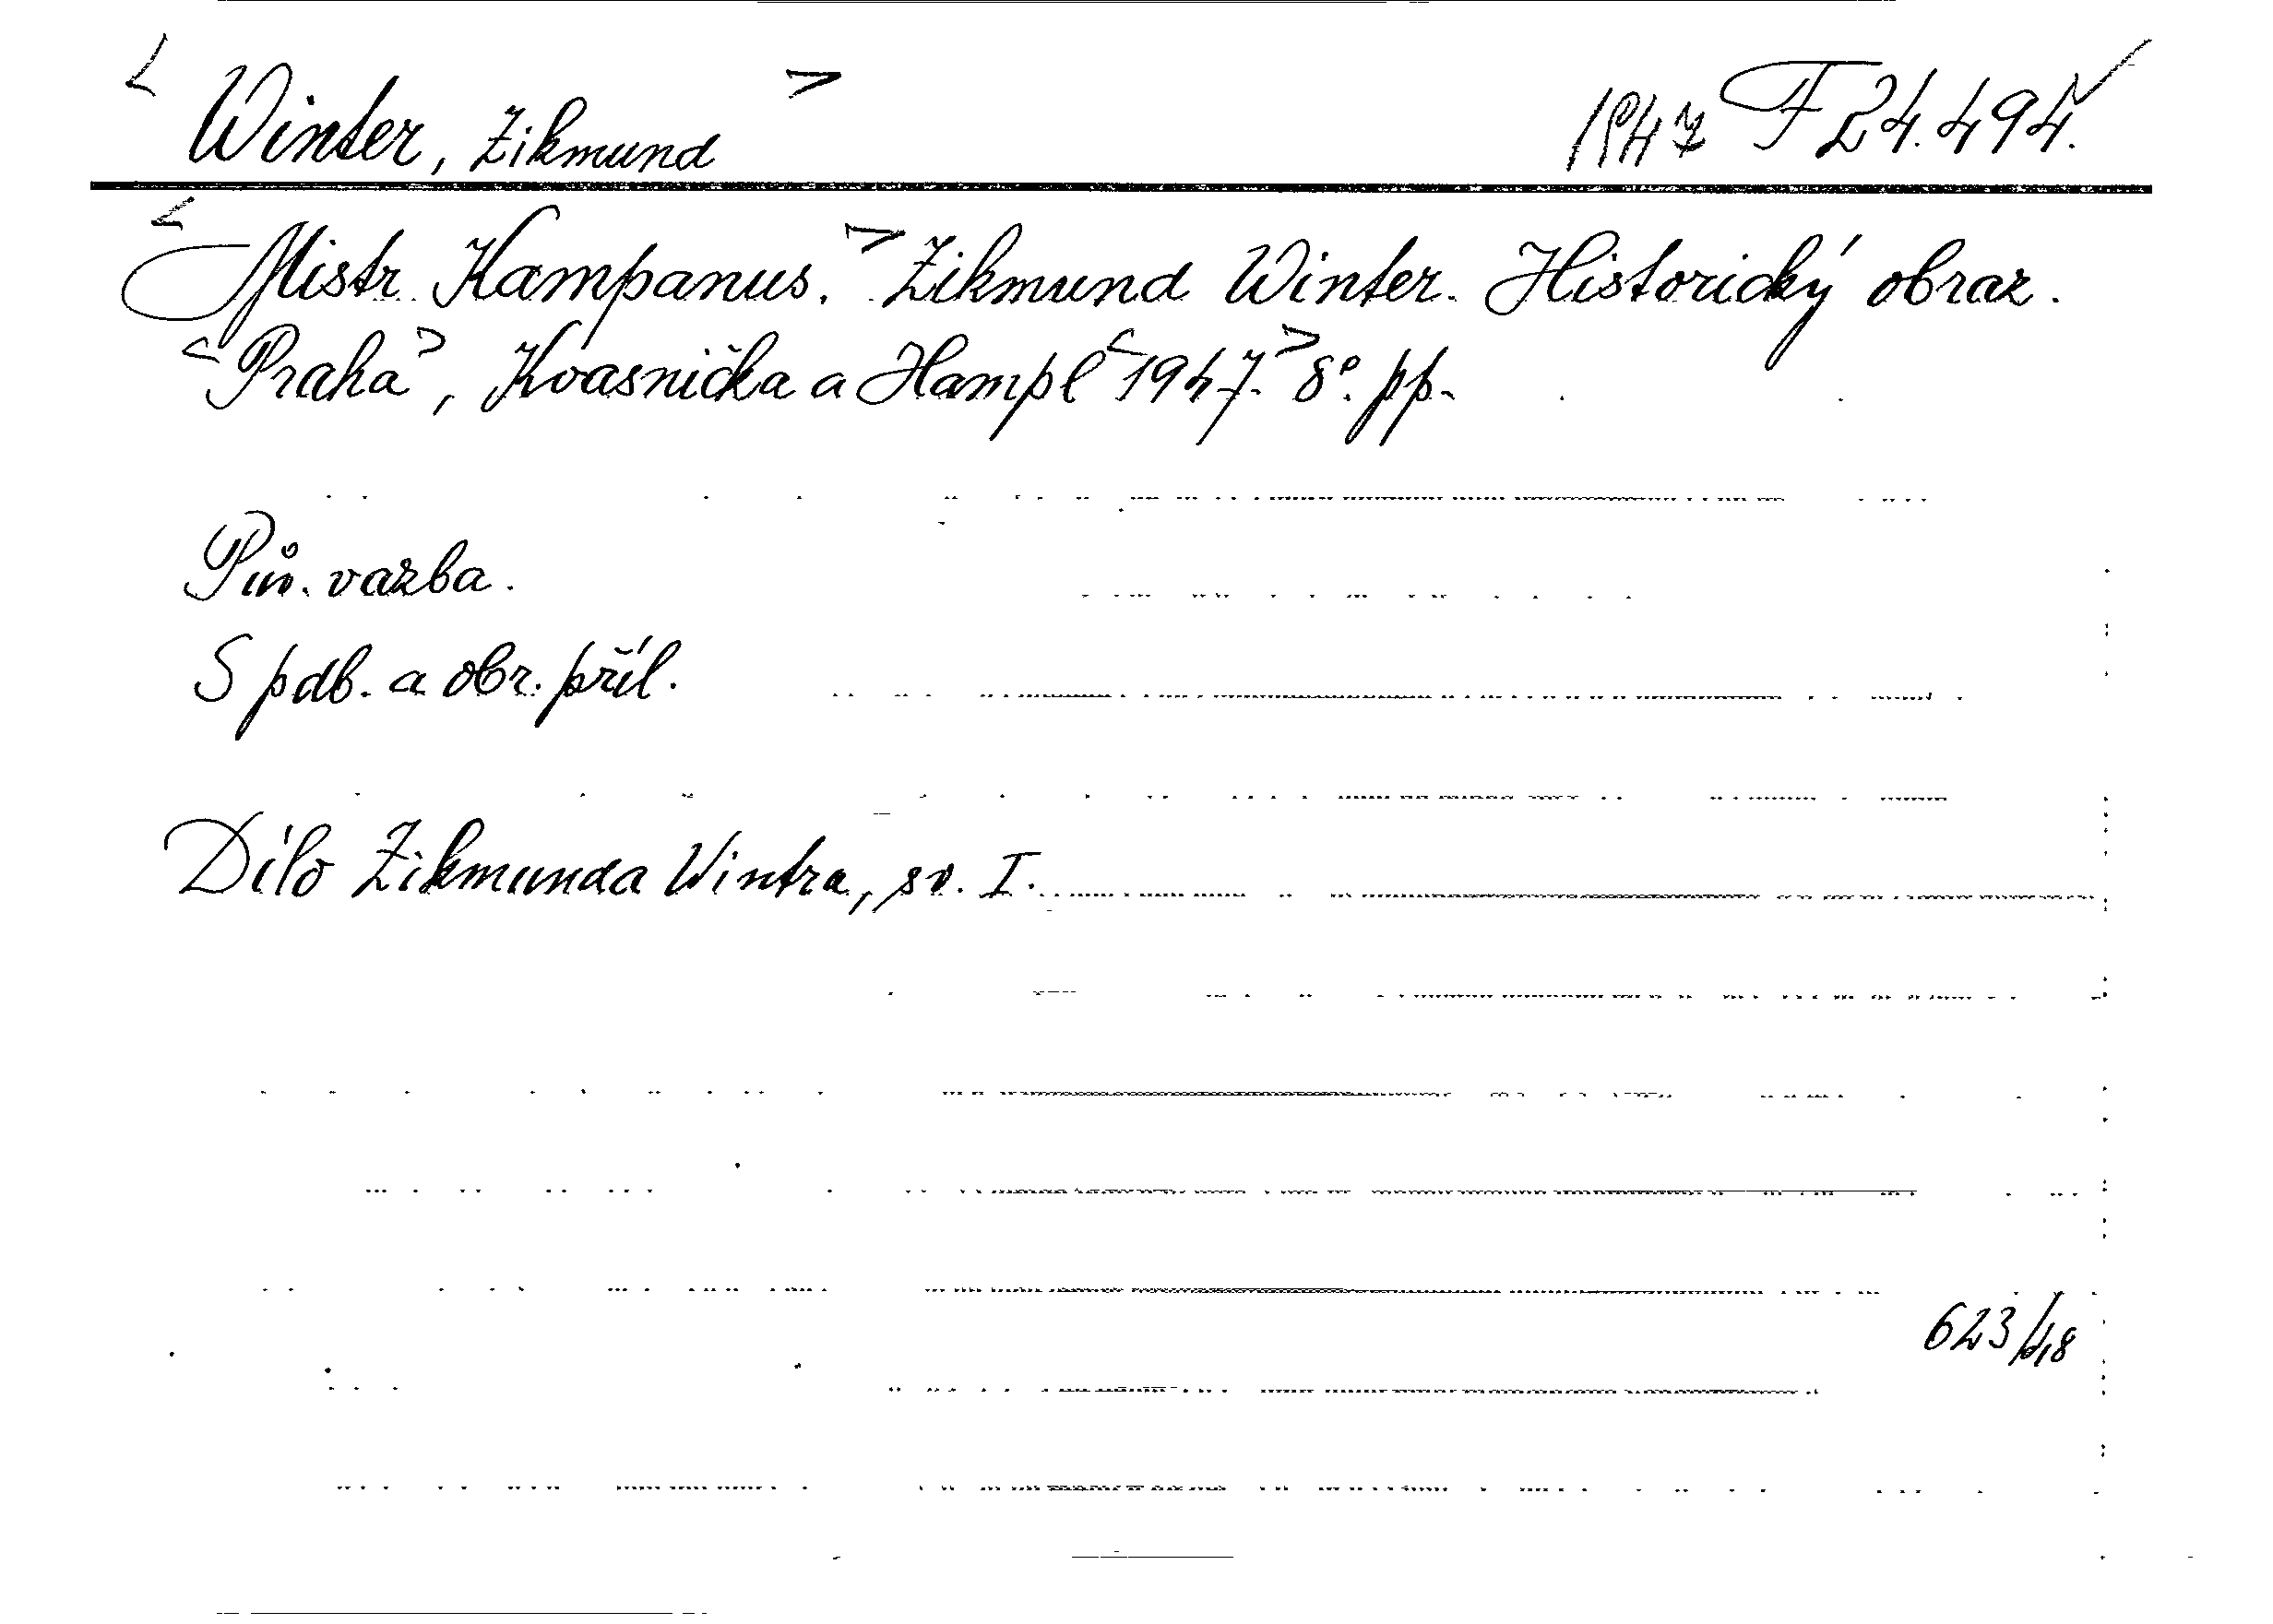 < Winter, Zikmund > 1947 F 24.494.
< Mistr Kampanus. > Zikmund Winter. Historický obraz.
< Praha >, Kvasnička a Hampl < 1947. > 8°. pp.
Pův. vazba.
S pdb. a obr. příl.
Dílo Zikmunda Wintra, sv. I.
623/48